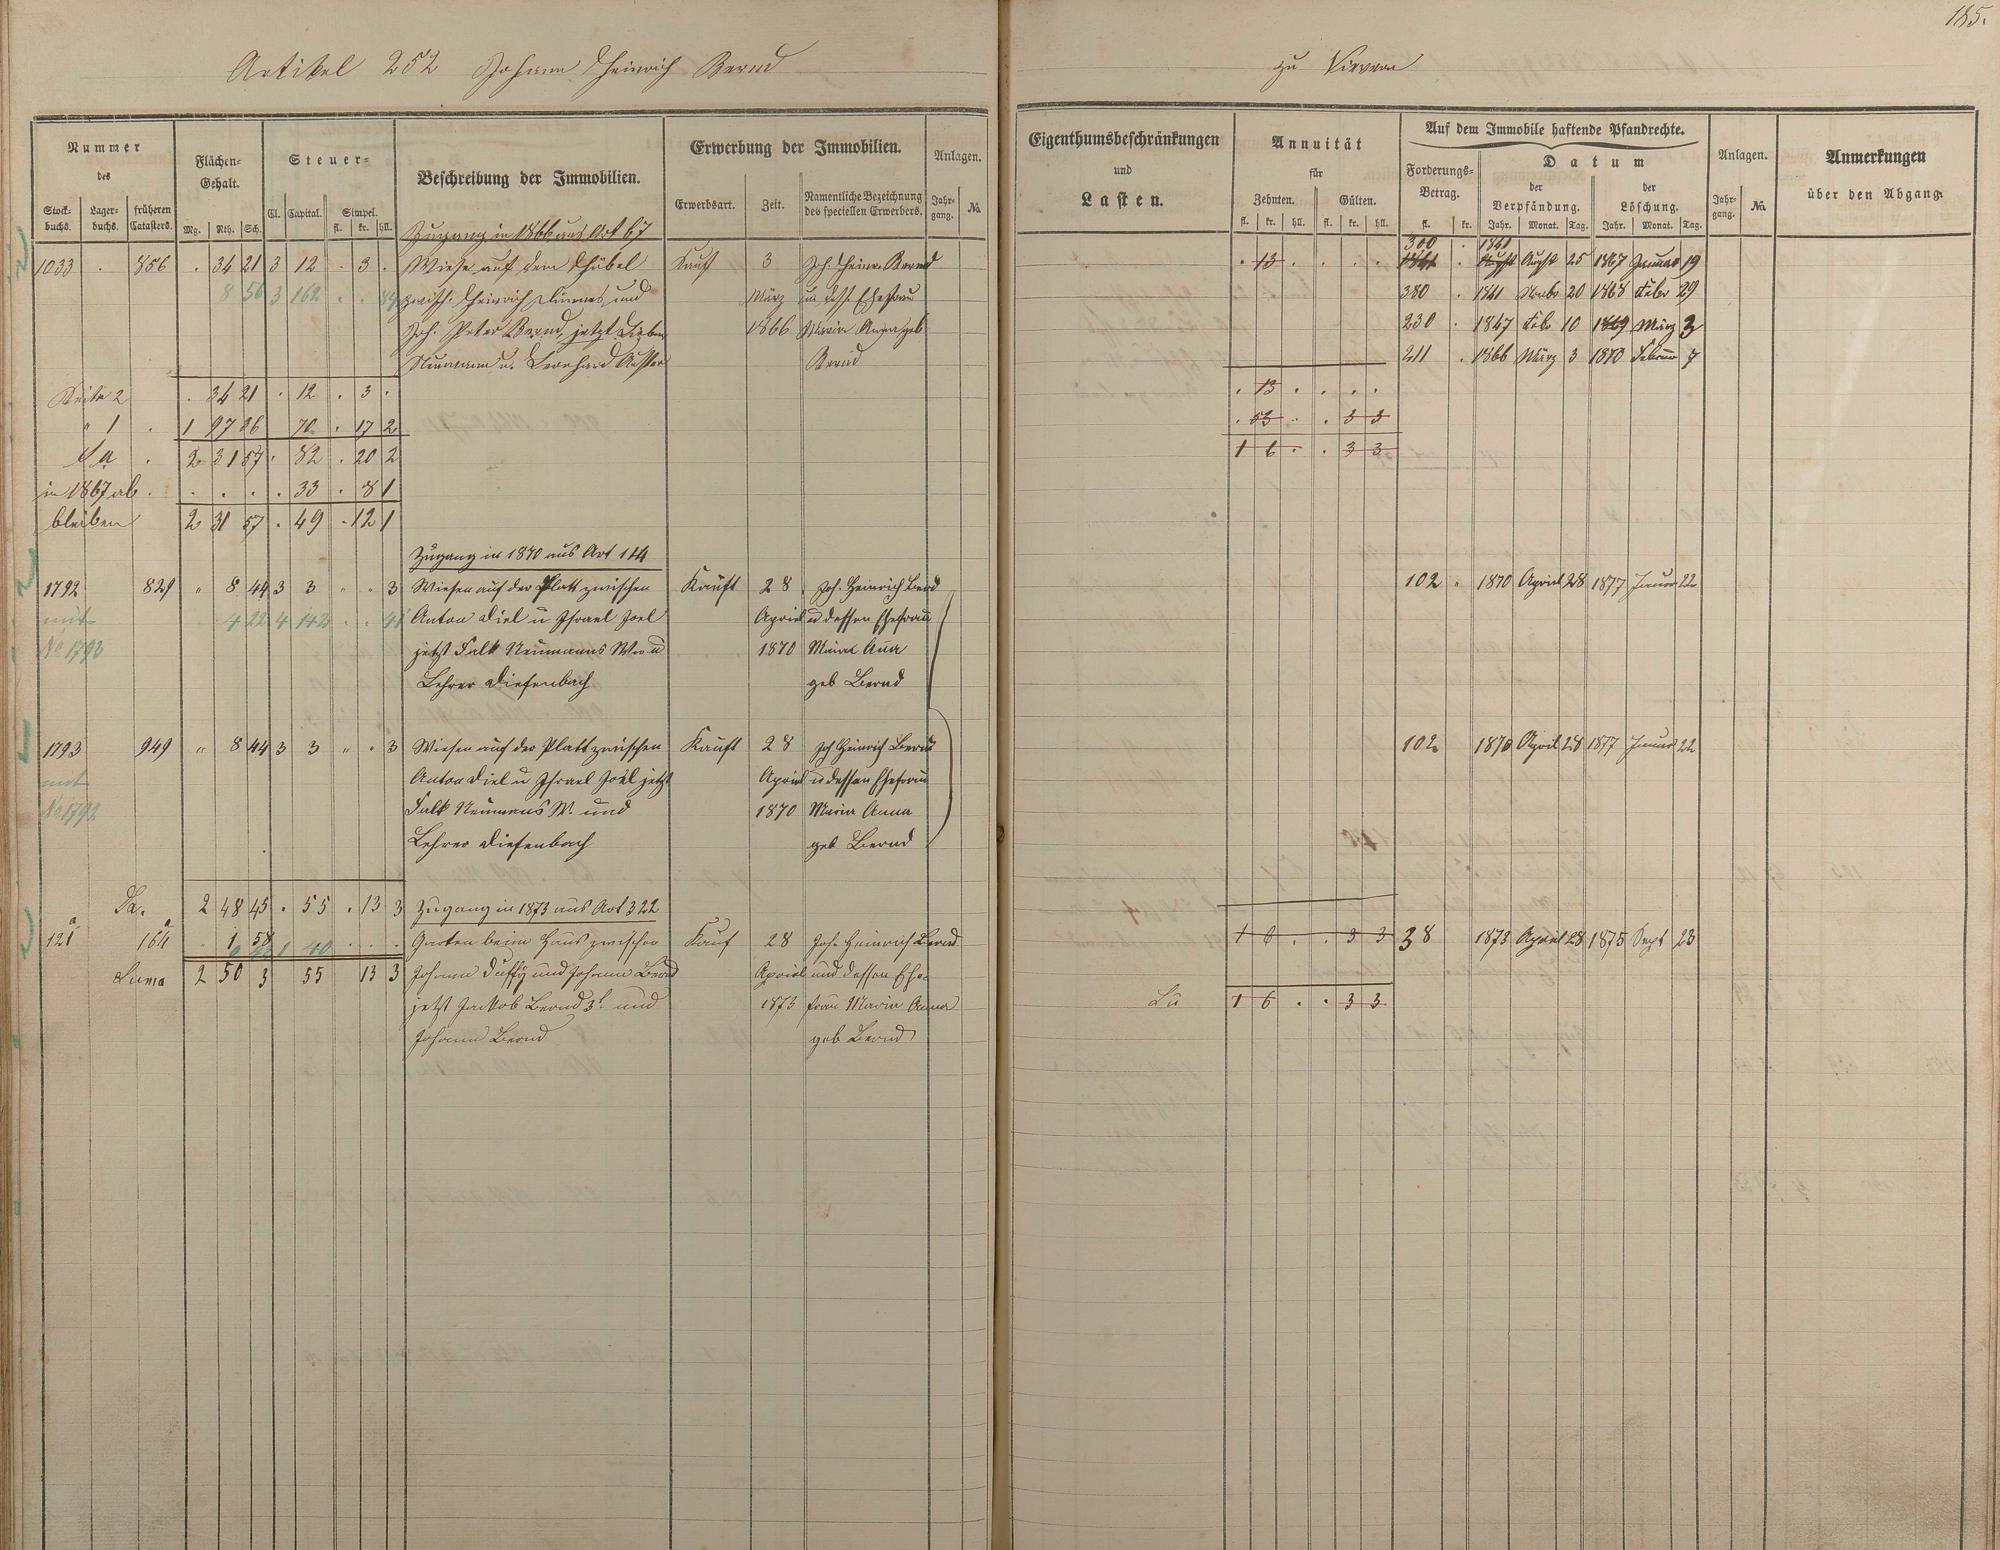 185.
Artikel 252 Johann Heinrich Bernd
zu
Nummer
des
Stock-buchs. Lager-buchs. früheren Catasters.
Flächen-Gehalt.
Mg. Rth. Sch.
Steuer-
Cl. Capital. Simpel.
fl. kr. hll.
Beschreibung der Immobilien.
Erwerbung der Immobilien.
Erwerbsart. Zeit. Namentliche Bezeichnung des speciellen Erwerbers.
Anlagen.
Jahr-gang. No.
Eigenthumsbeschränkungen
und
Lasten.
Annuität
für
Zehnten. Gülten.
fl. kr. hll. fl. kr. hll.
Auf dem Immobile haftende Pfandrechte.
Forderungs-Betrag.
fl. kr.
Datum
der Verpfändung. der Löschung.
Jahr. Monat. Tag. Jahr. Monat. Tag.
Anlagen.
Jahr-gang. No.
Anmerkungen
über den Abgang.
Zugang in 1866 aus Art 67
1033 . 856 . 34 21 3 12 . 3 . Wiese auf dem Kauf 3 Joh. Heinr. Bernd . 13 . . . . 300 . 1841 Augst 25 1867 Januar 19
8 56 3 162 . . zwisch. Heinrich und März u. dess. Ehefrau 380 . 1841 Novbr 20 1868 Febr 29
Joh. Peter Bernd, jetzt 1866 Maria Anna geb 230 . 1847 Febr 10 1869 März 3
Neumann u. Leonhard Bernd 211 . 1866 März 3 1870 Februar 7
Seite 2 . 34 21 . 12 . 3 . . 13 . . . .
" 1 . 1 97 26 70 . 17 2 . 53 . . 3 3
Sa . 2 31 57 . 82 . 20 2 1 6 . . 3 3
in 1867 ab . . . . . 33 . 8 1
bleiben 2 31 57 . 49 . 12 1
Zugang in 1870 aus Art 114
1792 829 " 8 44 3 3 " . 3 Wiesen auf der Platt zwischen Kauft 28 Joh. Heinrich Bernd 102 " 1870 April 28 1877 Januar 22
mit 4 22 4 142 . . Anton Diel u Israel Joel April u dessen Ehefrau
No 1793 jetzt Falk Neumanns W. u 1870 Maria Anna
Lehrer Diefenbach geb Bernd
1793 949 " 8 44 3 3 " . 3 Wiesen auf der Platt zwischen Kauft 28 Joh Heinrich Bernd 102 1870 April 28 1877 Januar 22
mit Anton Diel u Israel Joel jetzt April u dessen Ehefrau
No 1792 Falk Neumens W. und 1870 Maria Anna
Lehrer Diefenbach geb Bernd
Sa. 2 48 45 . 55 . 13 3 Zugang in 1873 aus Art 322
121 a 164 a . 1 58 1 40 . . . Garten beim Haus zwischen Kauf 28 Joh. Heinrich Bernd 1 6 . . 3 3 38 1873 April 28 1875 Sept 23
Suma 2 50 3 55 13 3 Johann und Johann Bernd April und dessen Ehe-
jetzt Jakob Bernd 3t. und 1873 frau Maria Anna Su 1 6 . . 3 3
Johann Bernd geb Bernd